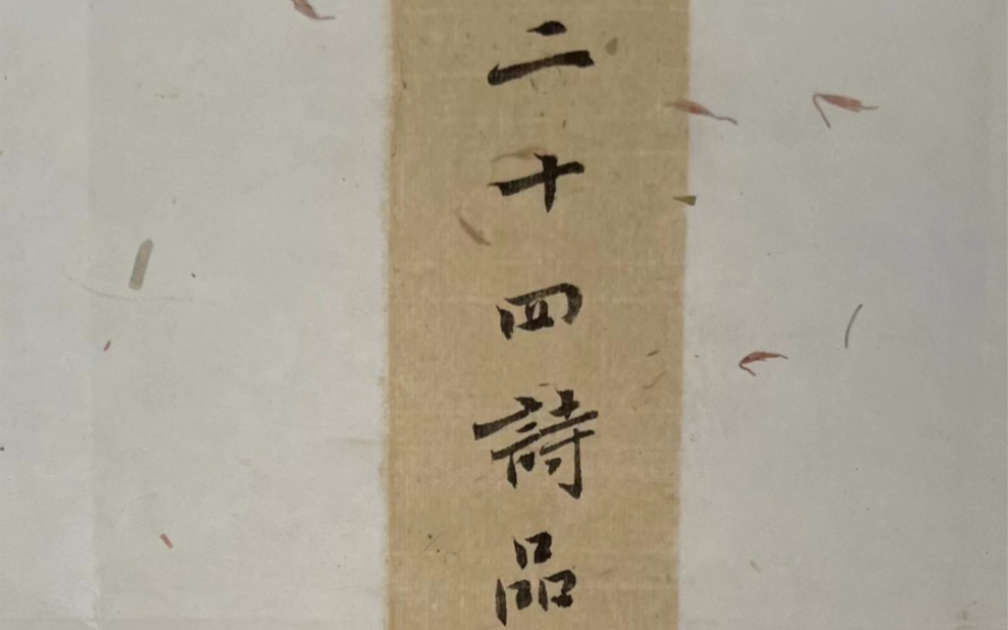 二十四詩品